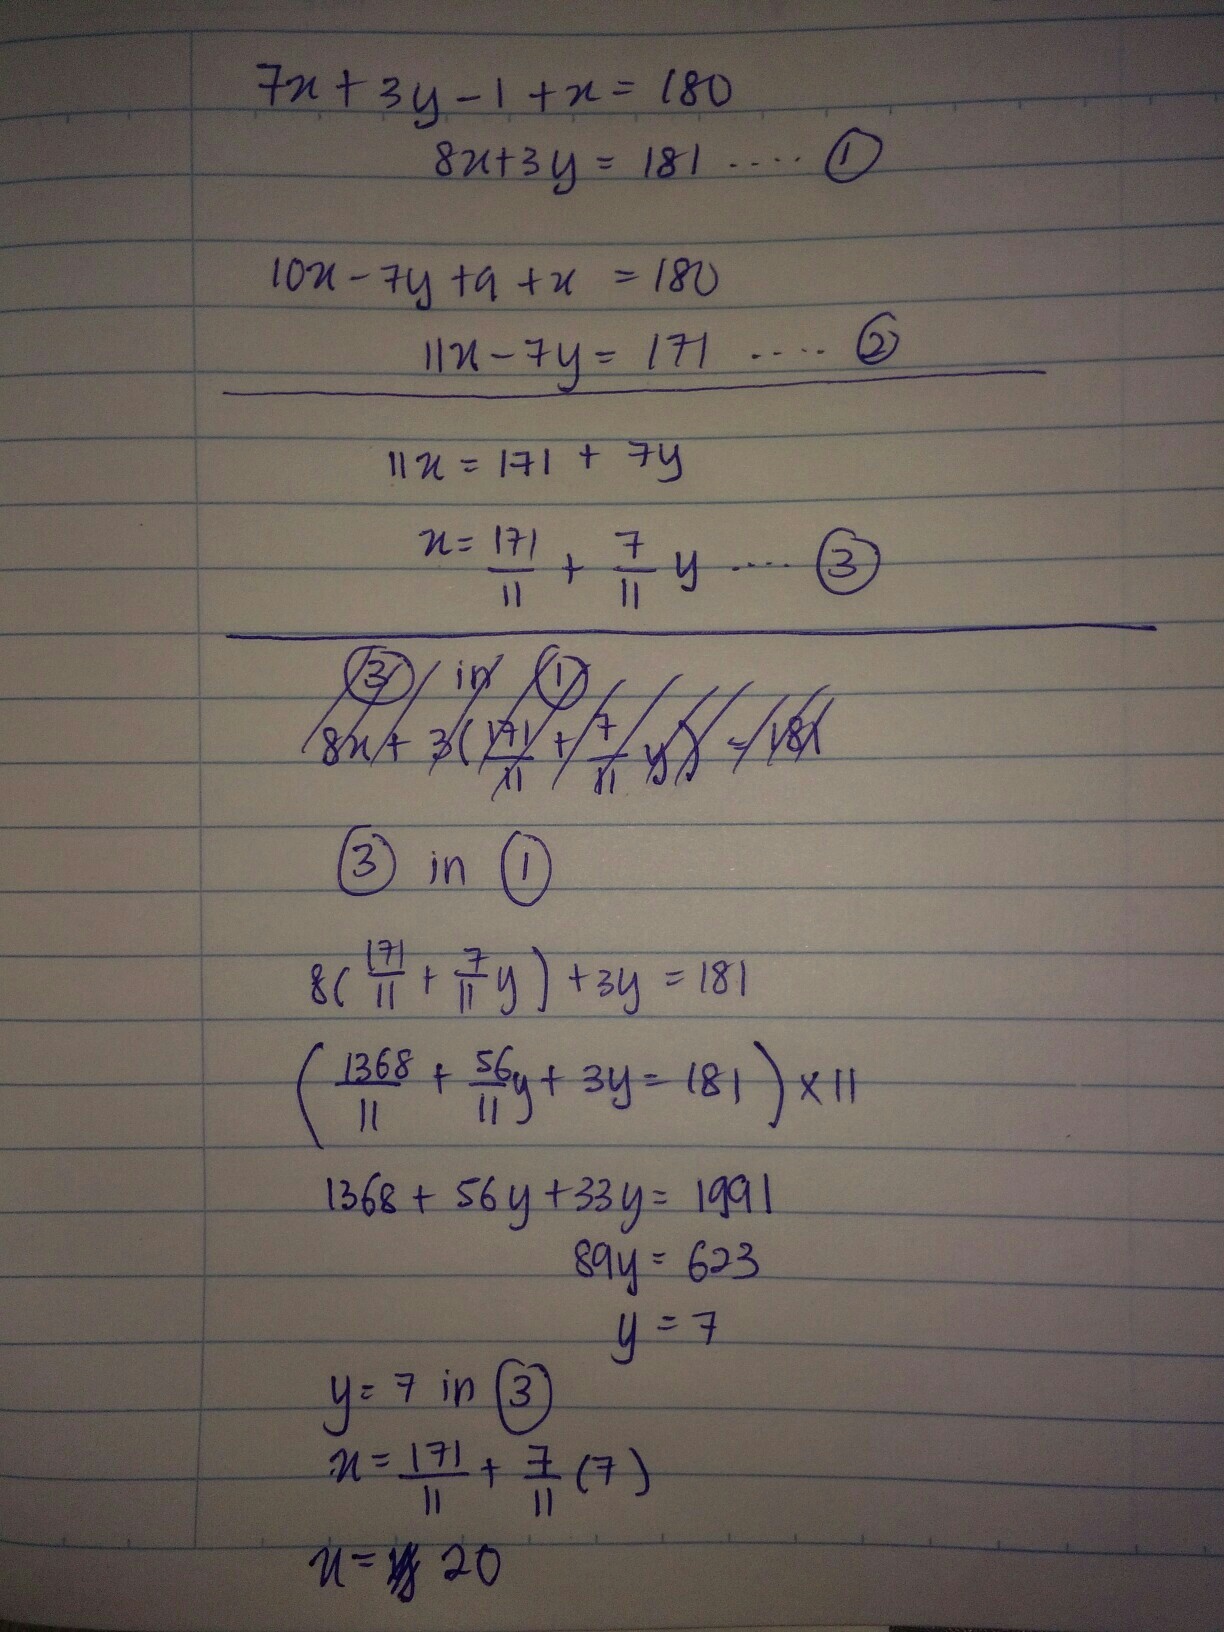 7x + 3y - 1 + x = 180
8x + 3y = 181 ..... ①
10x - 7y + 9 + x = 180
11x - 7y = 171 ..... ②
11x = 171 + 7y
x = 171/11 + 7/11 y ..... ③
③ in ①
8x + 3(171/11 + 7/11 y) = 181
③ in ①
8(171/11 + 7/11 y) + 3y = 181
(1368/11 + 56/11 y + 3y = 181) × 11
1368 + 56y + 33y = 1991
89y = 623
y = 7
y = 7 in ③
x = 171/11 + 7/11 (7)
x = 20